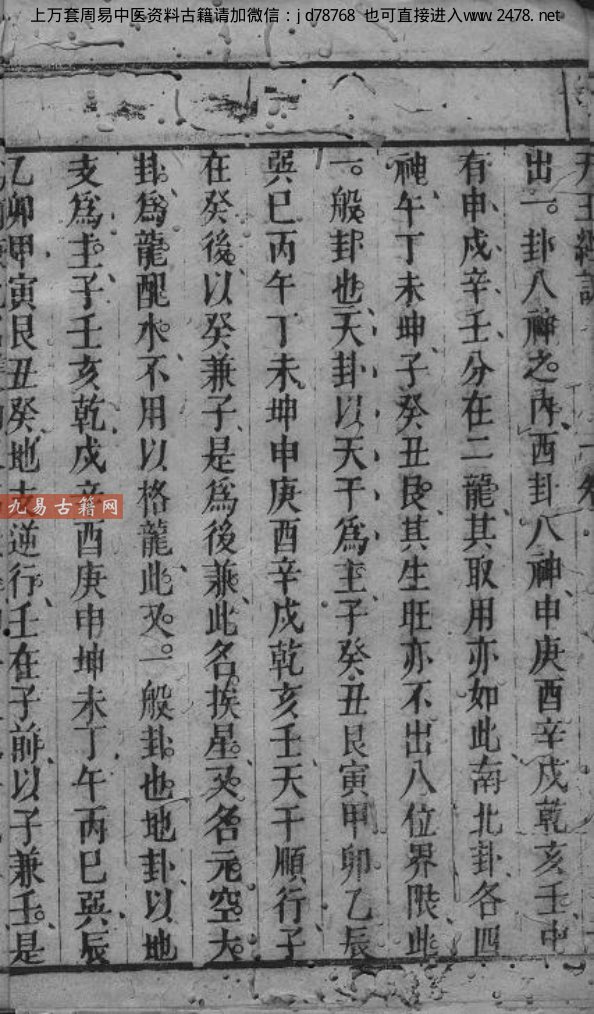 上万套周易中医资料古籍请加微信：jd78768 也可直接进入www.2478.net
天玉經註 一卷
出一卦八神之內西卦八神申庚酉辛戌乾亥壬中
有申戌辛壬分在二龍其取用亦如此南北卦各四
神午丁未坤子癸丑艮其生旺亦不出八位界限此
一般卦也天卦以天干爲主子癸丑艮寅甲卯乙辰
巽巳丙午丁未坤申庚酉辛戌乾亥壬天干順行子
在癸後以癸兼子是爲後兼此名挨星又名元空大
卦爲龍配水不用以格龍此又一般卦也地卦以地
支爲主子壬亥乾戌辛酉庚申坤未丁午丙巳巽辰
乙卯甲寅艮丑癸地支逆行壬在子前以子兼壬是
九易古籍网